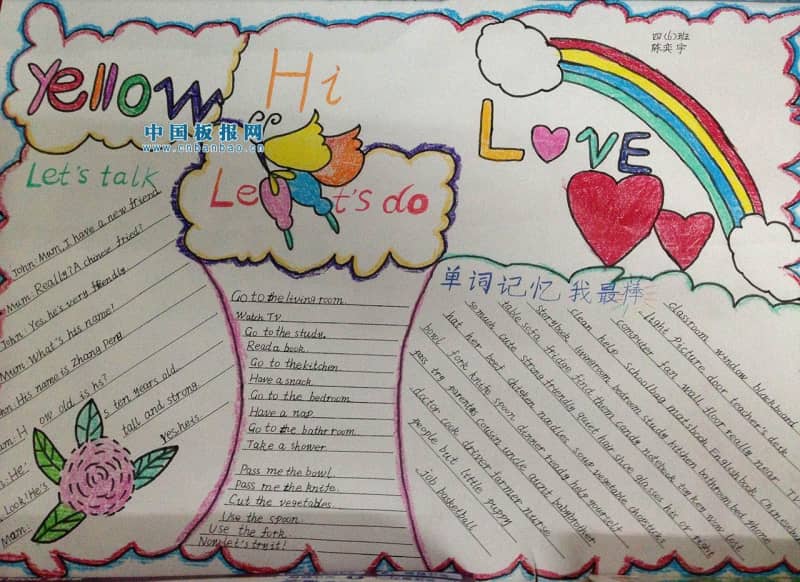 yellow
Hi
LOVE
四(6)班
陈奕宇
中国板报网
www.cnbanbao.cn
Let's talk
John: Mum, I have a new friend.
Mum: Really? A chinese fried?
John: Yes, he's very friendly.
Mum: What's his name?
John: His name is Zhang Peng
Mum: How old is hs?
He's ten years old.
Look! He's tall and strong.
Mum: Yes, he is.
Let's do
Go to the living room.
Watch TV.
Go to the study.
Read a book.
Go to the kitchen.
Have a snack.
Go to the bedroom.
Have a nap.
Go to the bathroom.
Take a shower.
Pass me the bowl.
Pass me the knife.
Cut the vegetables.
Use the spoon.
Use the fork.
Now let's try it!
单词记忆我最棒
classroom window blackboard
light picture door teacher's desk
computer fan wall floor really near
clean help schoolbag maths book English book Chinese book
storybook
table sofa fridge find them candy notebook
livingroom bedroom study kitchen bathroom bed phone
so much cute strong friendly quiet hair shoe glasses his or right
hat her beef chicken noodles soup vegetable chopsticks
bowl fork knife spoon dinner ready help yourself
pass try parents cousin uncle aunt baby brother
doctor cook driver farmer nurse
people but little puppy
job basketball